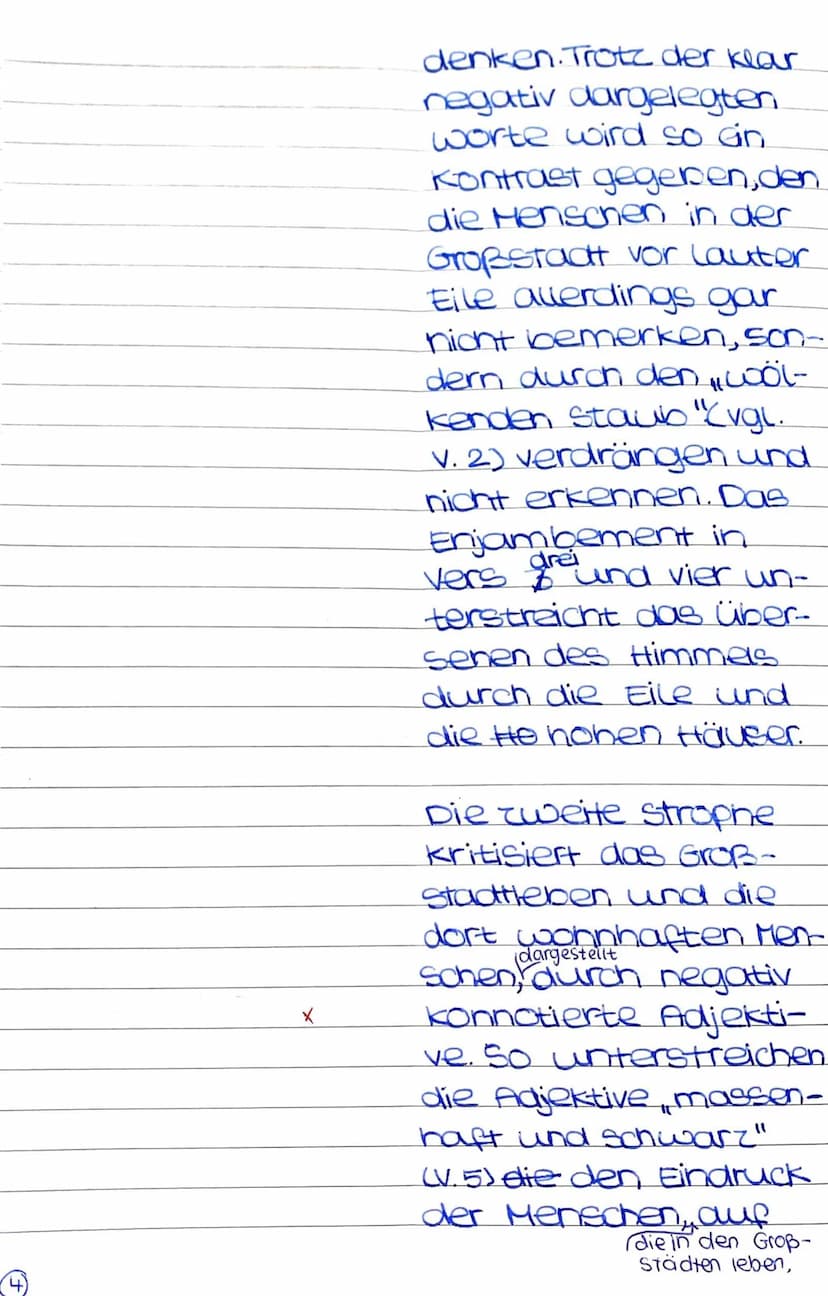 denken. Trotz der klar
negativ dargelegten
Worte wird so ein
Kontrast gegeben, den
die Menschen in der
Großstadt vor lauter
Eile allerdings gar
nicht bemerken, son-
dern durch den „wöl-
kenden Staub" (vgl.
V. 2) verdrängen und
nicht erkennen. Das
Enjambement in
Vers drei und vier un-
terstreicht das Über-
sehen des Himmels
durch die Eile und
die Ho hohen Häuser.
Die zweite Strophe
kritisiert das Groß-
stadtleben und die
dort wohnhaften Men-
schen, dargestellt durch negativ
x konnotierte Adjekti-
ve. So unterstreichen
die Adjektive „massen-
haft und schwarz"
(V. 5) die den Eindruck
der Menschen, auf
die in den Groß-
städten leben,
4